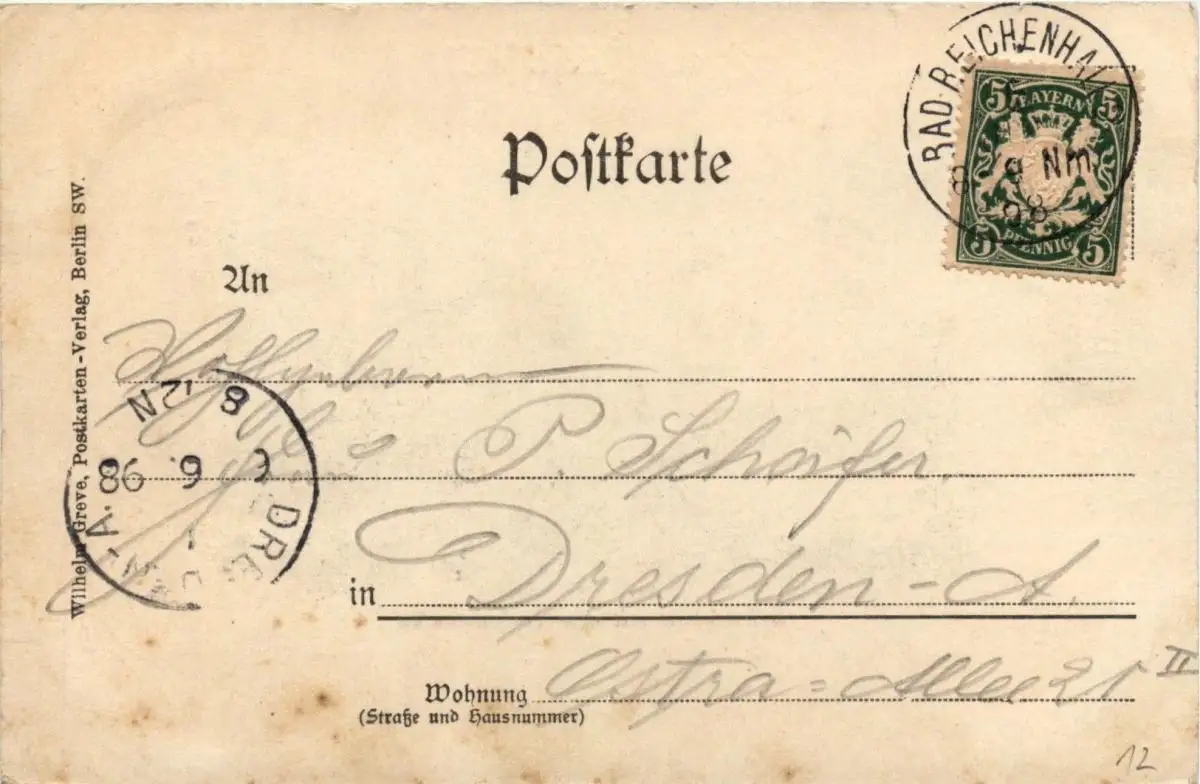 BAD REICHENHALL
8 Nm
98
5 BAYERN 5
5 PFENNIG 5
Postkarte
Wilhelm Greve, Postkarten-Verlag, Berlin SW.
An
P. Schäfer.
8 12N
6. 98
DRESDEN-A.
in Dresden-A.
Wohnung Ostra=Allee 21 II
(Straße und Hausnummer)
12